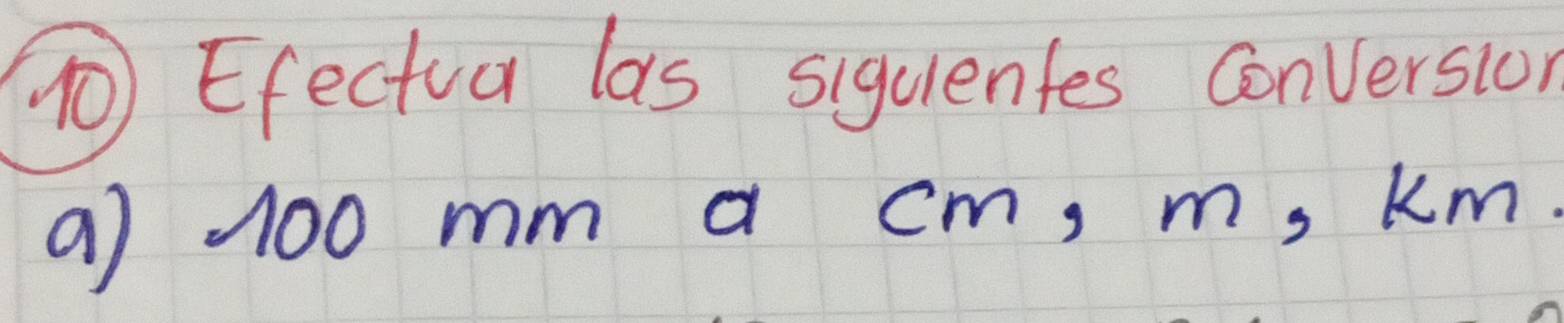 10 Efectua las siguientes conversion
a) 100 mm a cm, m, km.